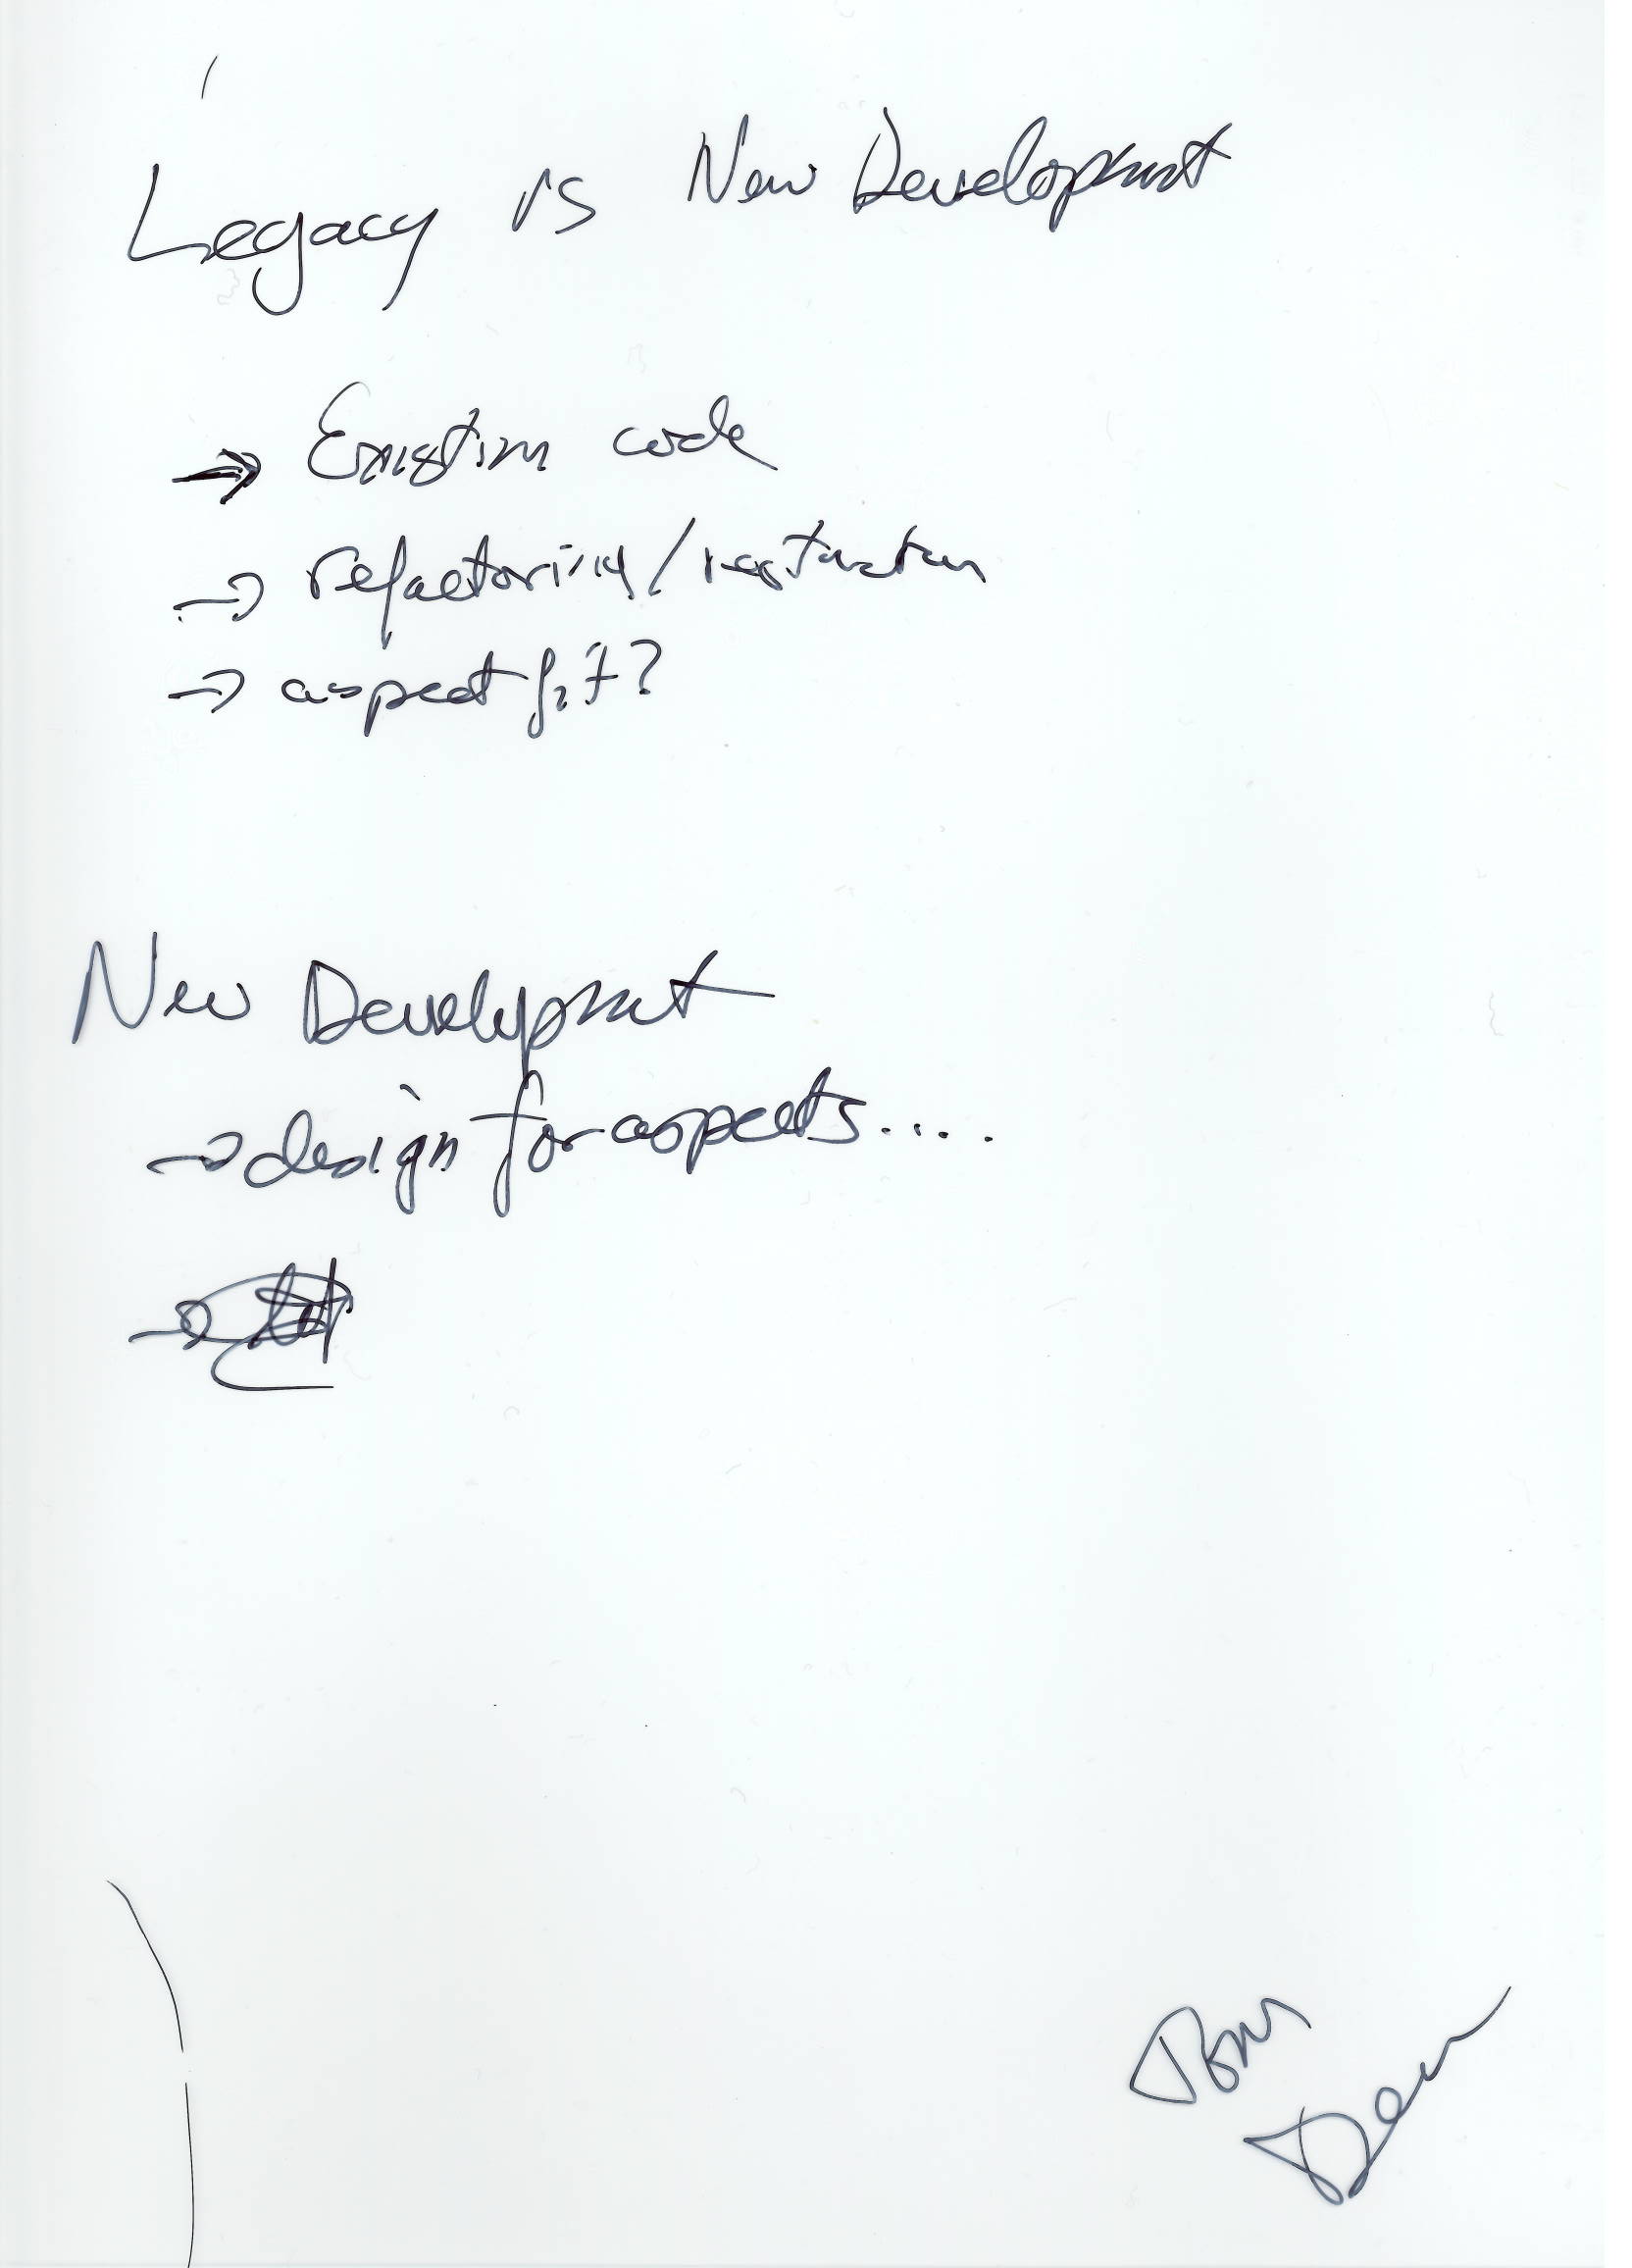 Legacy vs New Development
→ Existing code
→ refactoring/
→ aspect fit?
New Development
→ design for aspects.....
→